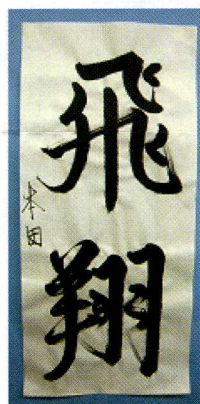 飛翔
本田